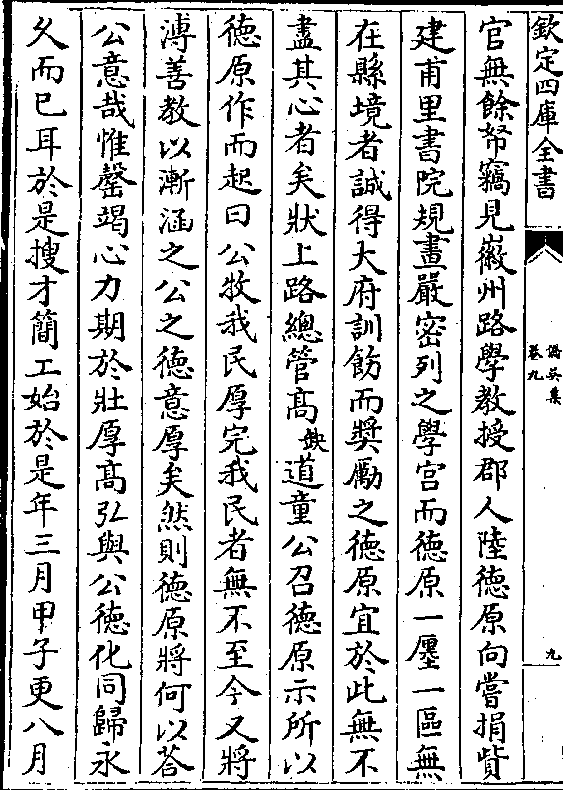 欽定四庫全書
僑吳集
卷九
九
官無餘帑竊見徽州路學教授郡人陸徳原向嘗捐貲
建甫里書院規畫嚴密列之學宫而徳原一㕓一區無
在縣境者誠得大府訓飭而奬勵之徳原宜於此無不
盡其心者矣狀上路總管髙缺道童公召徳原示所以
徳原作而起曰公牧我民厚完我民者無不至今又將
溥善教以漸涵之公之徳意厚矣然則徳原將何以荅
公意哉惟罄竭心力期於壯厚髙弘與公徳化同歸永
久而已耳於是搜才簡工始於是年三月甲子更八月